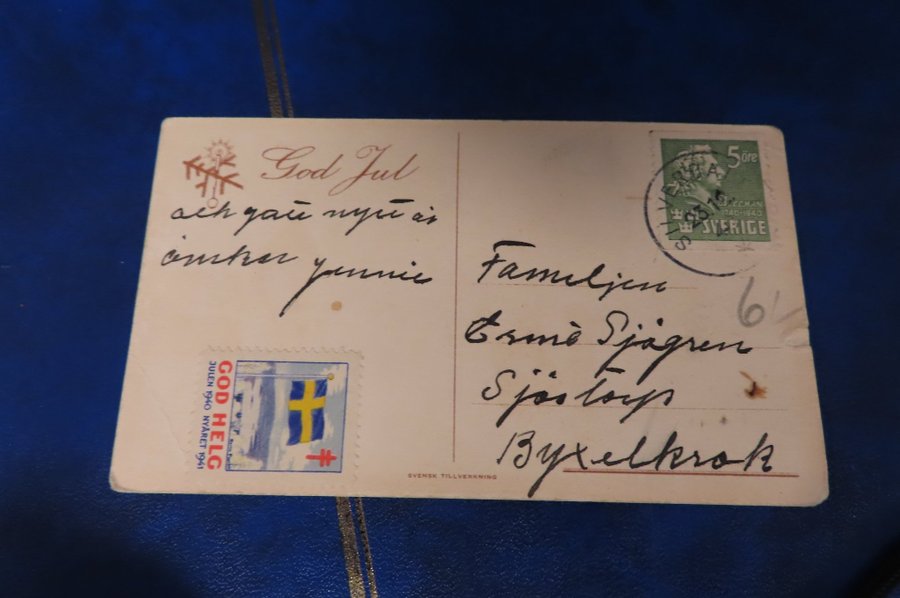 God Jul
och gott nytt år
önskar Jennie
GOD HELG
JULEN 1940 NYÅRET 1941
SVENSK TILLVERKNING
5 öre
1740-1940
SVERIGE
23 12
Familjen
Sjögren
Sjöstorp
Byxelkrok
6